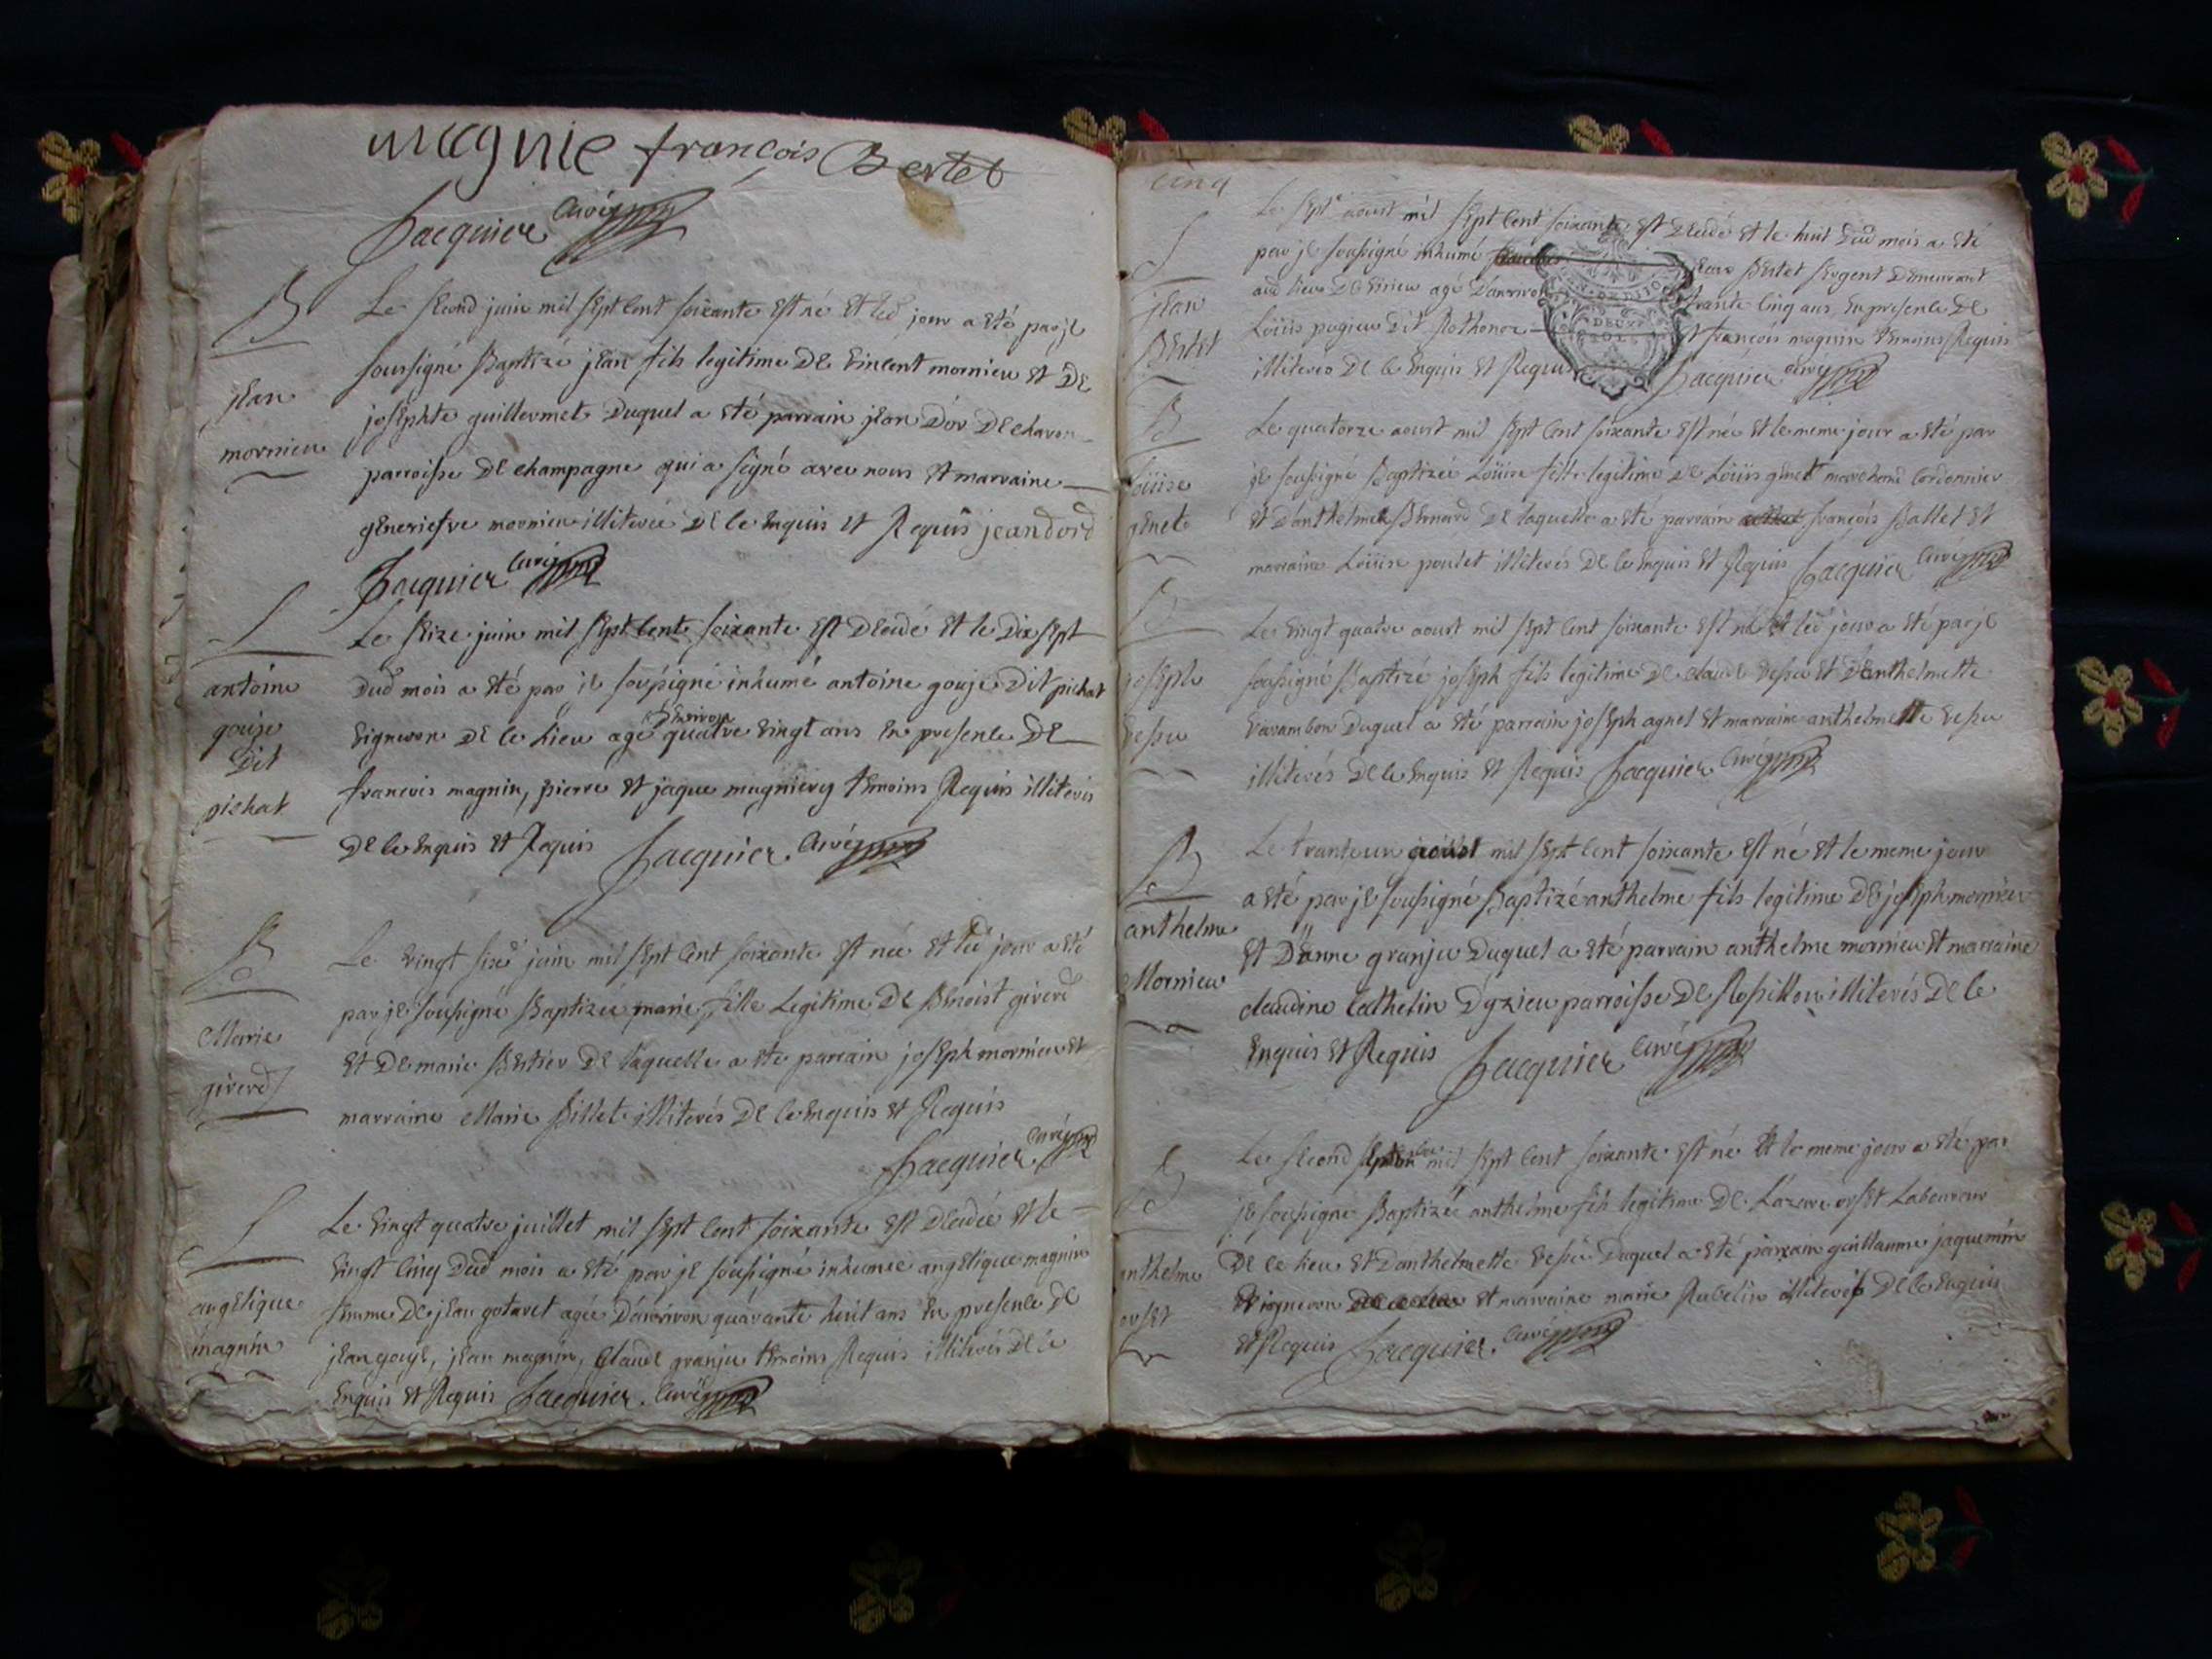 magnie françois Bertet
Jacquier Curé
B
jean
mornieu
Le second juin mil sept cent soixante est né et led jour a eté par je
soussigné Baptizé jean fils legitime de vincent mornieu et de
josephte guillermet duquel a eté parrain jean d'or de charon
parroisse de champagne qui a signé avec nous et marraine
generiefve mornieu illiterée de ce enquis et Requis jean dord
Jacquier Curé
S
antoine
gouje
dit
pichat
Le seize juin mil sept cent soixante est decedé et le dix sept
dud mois a eté par je soussigné inhumé antoine gouje dit pichat
vigneron de ce lieu agé d'environ quatre vingt ans en presence de
francois magnin, pierre et jaque mugniery temoins Requis illiterés
de ce enquis et Requis Jacquier Curé
B
Marie
girerd
Le vingt six juin mil sept cent soixante est née et led jour a eté
par je soussigné Baptizée marie fille Legitime de Benoist girerd
et de marie Bertier de laquelle a ete parrain joseph mornieu et
marraine Marie Billet illiterés de ce enquis et Requis
Jacquier Curé
S
angelique
magnin
Le vingt quatre juillet mil sept cent soixante est decedée et le
vingt cinq dud mois a eté par je soussigné inhumée angelique magnin
femme de jean gotaret agée d'anviron quarante huit ans en presence de
jean gouje, jean magnin, Claude granju temoins Requis illiterés de ce
enquis et Requis Jacquier Curé
cinq
S
jean
Bertet
Le sept aoust mil sept cent soixante est decedé et le huit dud mois a eté
par je soussigné inhumé jean Bertet sergent demeurant
aud lieu de agé d'anviron trante cinq ans en presence de
Loüis pugieu dit et françois magnin temoins Requis
illiterés de ce enquis et Requis Jacquier Curé
DEUX
SOLS
B
Loüise
genet
Le quatorze aoust mil sept cent soixante est née et le meme jour a eté par
je soussigné Baptizée Loüise fille legitime de Loüis genet marchand cordonnier
et d'anthelme Bernard de laquelle a eté parrain françois Ballet et
marraine Loüise poulet illiterés de ce enquis et Requis Jacquier Curé
B
joseph
vessu
Le vingt quatre aoust mil sept cent soixante est né et led jour a eté par je
soussigné Baptizé joseph fils legitime de claude vessu et d'anthelmette
varambon duquel a eté parrain joseph agnel et marraine anthelmette vessu
illiterés de ce enquis et Requis Jacquier Curé
B
anthelme
Mornieu
Le trante un aoust mil sept cent soixante est né et le meme jour
a eté par je soussigné Baptizé anthelme fils legitime de joseph mornieu
et d'anne granju duquel a eté parrain anthelme mornieu et marraine
claudine cathelin d'yzieu parroisse de Rossillon illiterés de ce
enquis et Requis Jacquier Curé
B
anthelme
orset
Le second septembre mil sept cent soixante est né et le meme jour a eté par
je soussigné Baptizé anthelme fils legitime de Lazare orset Laboureur
de ce lieu et d'anthelmette vessu duquel a eté parrain guillaume jaquemin
vigneron et marraine marie Rubelin illiterés de ce enquis
et Requis Jacquier Curé